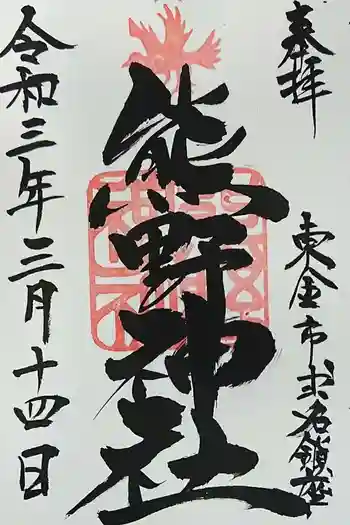 奉拝
東金市求名鎮座
熊野神社
令和三年三月十四日